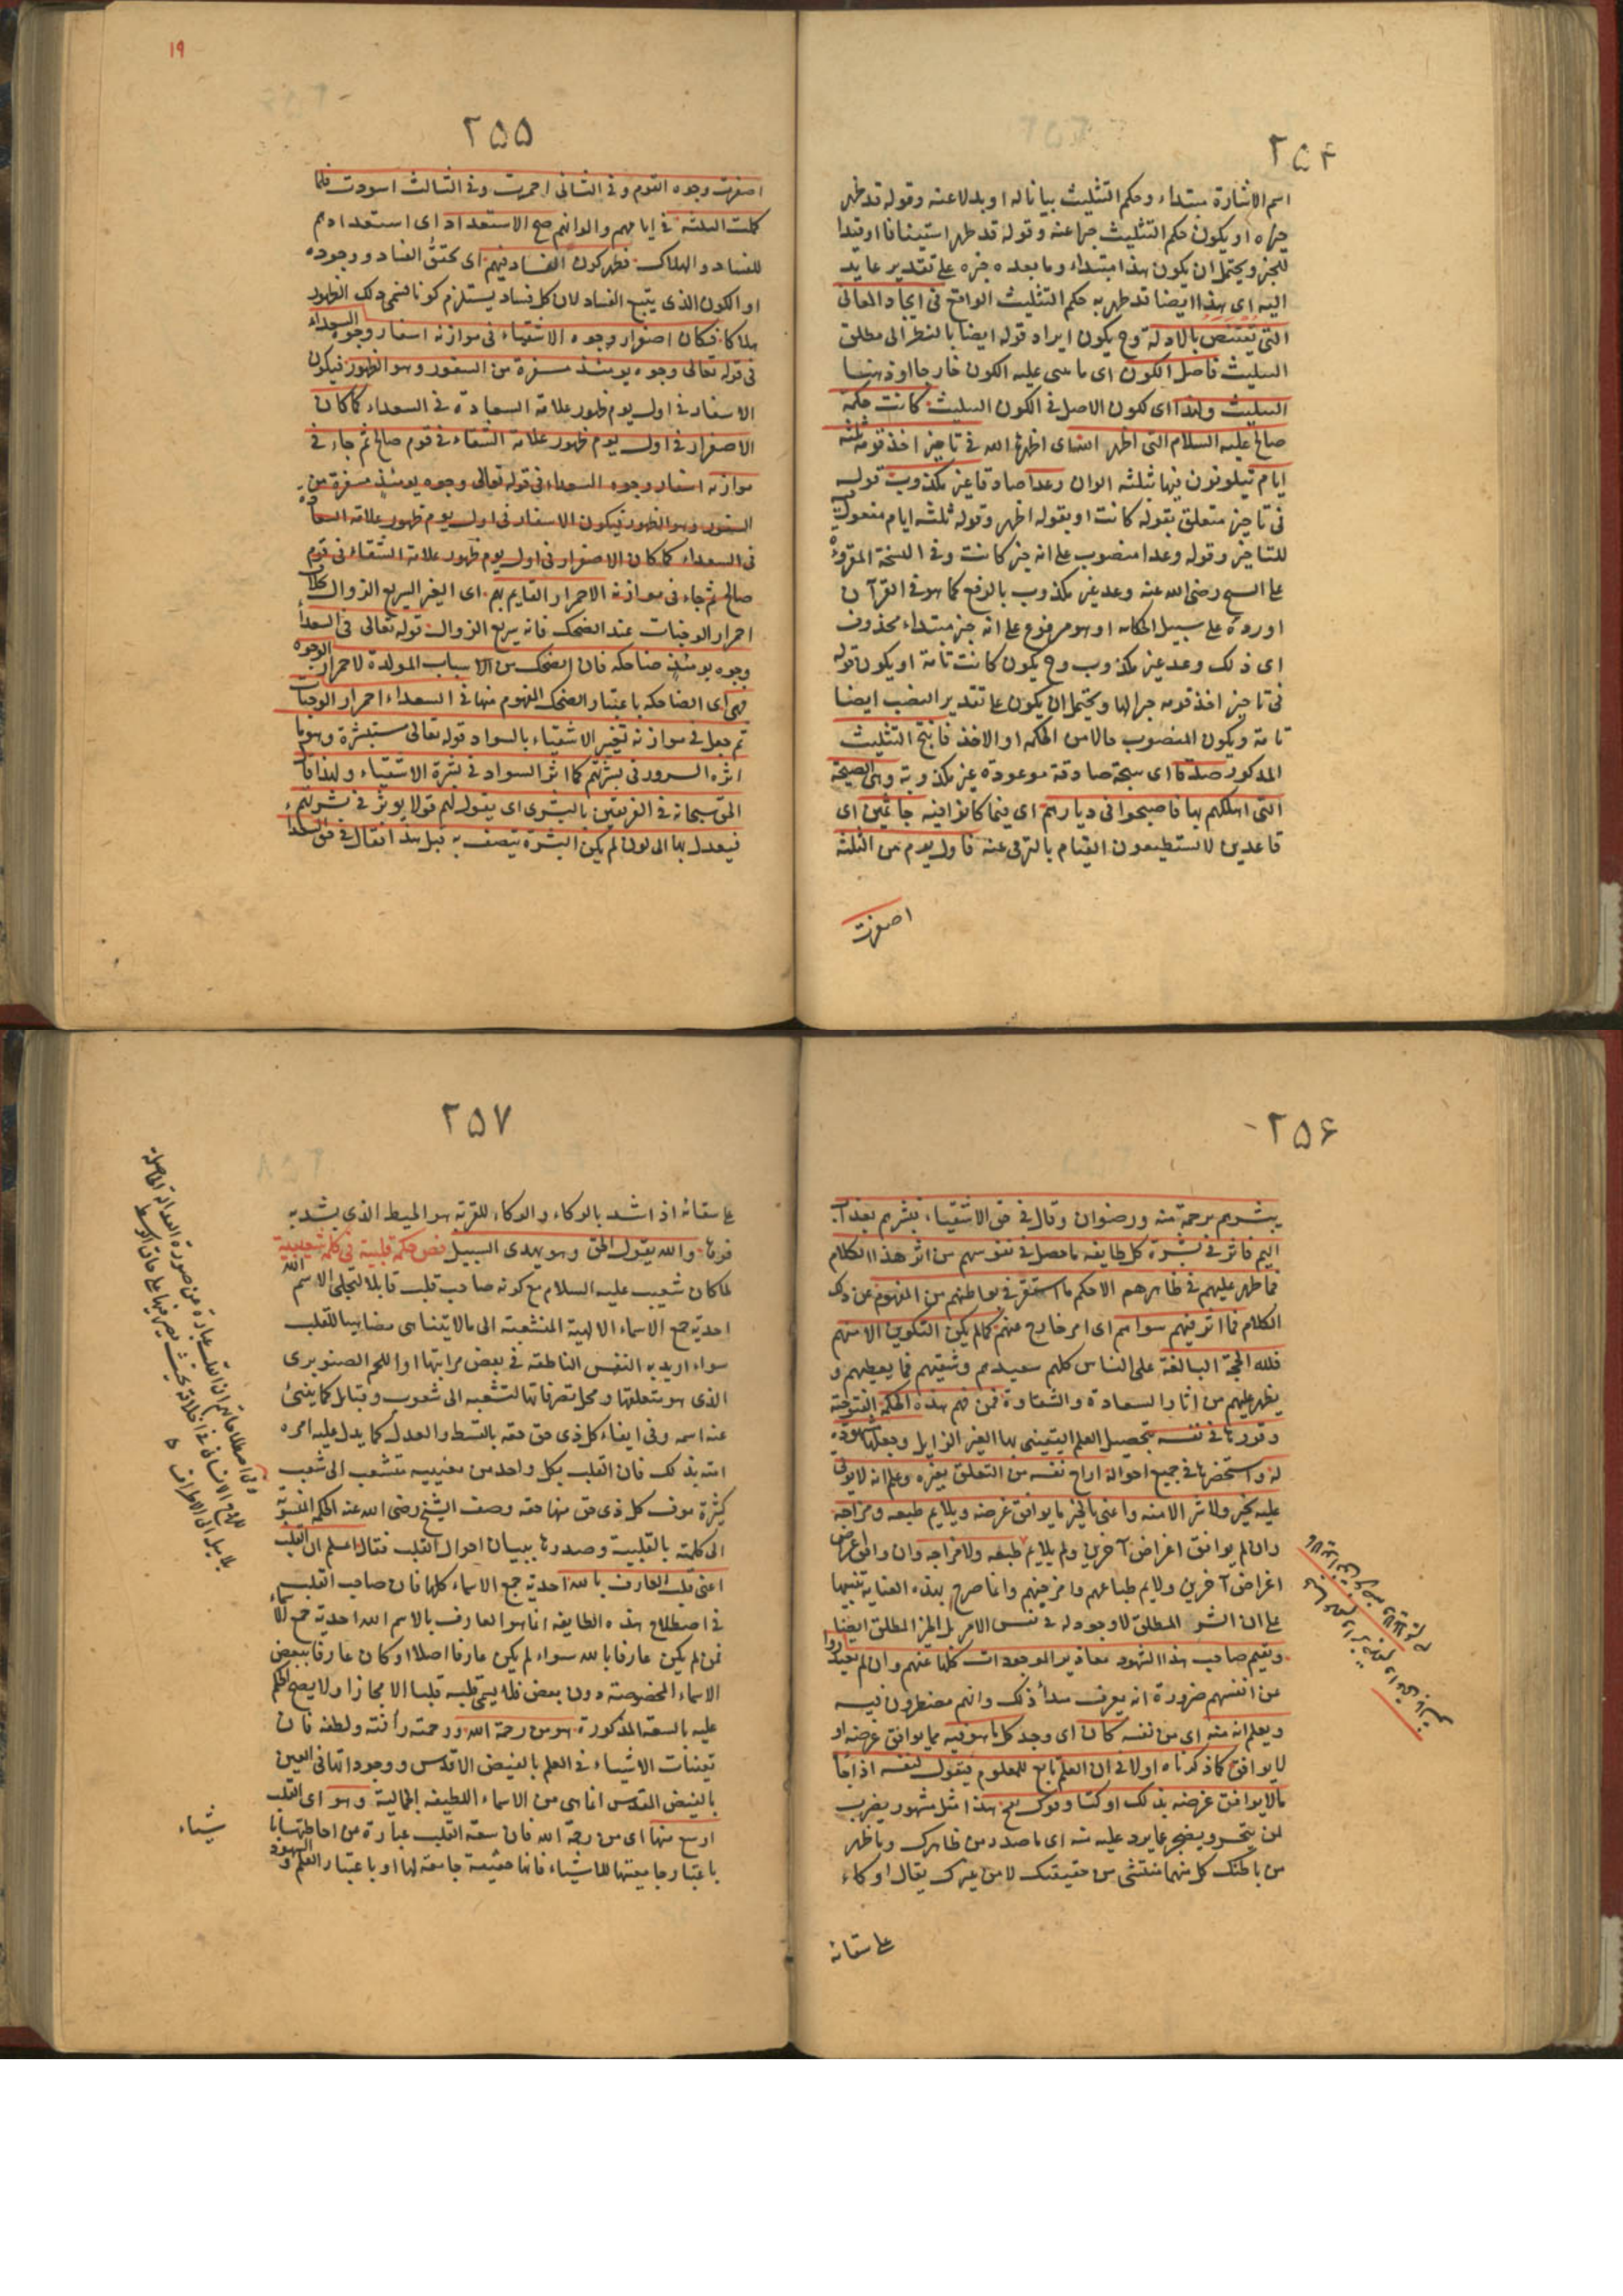 ٢٥٤
اسم الاشارة مبتداء وحكم التثليث بيانا له او بدلا عنه وقوله قد ظهر
خبره او يكون حكم التثليث خبرا عنه وقوله قد ظهر استينافا او قيدا
للخبر ويحتمل ان يكون هذا مبتداء وما بعده خبره على تقدير عايد
اليه اى هذا ايضا قد ظهر به حكم التثليث الواقع فى ايجاد المعانى
التى تقتنص بالادلة وح يكون ايراد قوله ايضا بالنظر الى مطلق
التثليث فاصل الكون اى ما بنى عليه الكون خارجا او ذهنا
التثليث ولهذا اى لكون الاصل فى الكون التثليث كانت حكمة
صالح عليه السلام التى اظهر الله اى اظهرها الله فى تاخير اخذ قومه ثلثة
ايام يتلونون فيها ثلثة الوان وعدا صادقا غير مكذوب قوله
فى تاخير متعلق بقوله كانت او بقوله اظهر وقوله ثلثه ايام مفعول فيه
للتاخير وقوله وعدا منصوب على انه خبر كانت وفى النسخة المقروءة
على الشيخ رضى الله عنه وعد غير مكذوب بالرفع كما هو فى القرآن
اورده على سبيل الحكاية او هو مرفوع على انه خبر مبتداء محذوف
اى ذلك وعد غير مكذوب وح يكون كانت تامة او يكون قوله
فى تاخير اخذ قومه خبرا لها ويحتمل ان يكون على تقدير النصب ايضا
تامة ويكون المنصوب حالا من الحكمة او الاخذ فانتج التثليث
المذكور صدقا اى نتيجة صادقة موعودة غير مكذوبة وهى الصيحة
التى اهلكهم بها فاصبحوا فى ديارهم اى فيما كانوا فيه جاثمين اى
قاعدين لا يستطيعون القيام بالترقى عنه فاول يوم من الثلثة
اصفرت
١٩
٢٥٥
اصفرت وجوه القوم وفى الثانى احمرت وفى الثالث اسودت فلما
كملت الثلثة فى ايامهم والوانهم صح الاستعداد اى استعدادهم
للفساد والهلاك فظهر كون الفساد فيهم اى تحقق الفساد ووجوده
او الكون الذى يتبع الفساد لان كل فساد يستلزم كونا فسمى ذلك الظهور
هلاكا فكان اصفرار وجوه الاشقياء فى موازنة اسفار وجوه السعداء
فى قوله تعالى وجوه يومئذ مسفرة من السفور وهو الظهور فيكون
الاسفار فى اول يوم ظهور علامة السعادة فى السعداء كما كان
الاصفرار فى اول يوم ظهور علامة الشقاء فى قوم صالح ثم جاء فى
موازنة اسفار وجوه السعداء فى قوله تعالى وجوه يومئذ مسفرة من
السفور وهو الظهور فيكون الاسفار فى اول يوم ظهور علامة السعادة
فى السعداء كما كان الاصفرار فى اول يوم ظهور علامة الشقاء فى قوم
صالح ثم جاء فى موازنة الاحمرار القايم بهم اى الغير السريع الزوال بخلاف
احمرار الوجنات عند الضحك فانه سريع الزوال قوله تعالى فى السعداء
وجوه يومئذ ضاحكه فان الضحك من الاسباب المولدة لاحمرار الوجوه
فهى اى الضاحكة باعتبار الضحك المفهوم منها فى السعداء احمرار الوجنات
ثم جعل فى موازنة تغير الاشقياء بالسواد قوله تعالى مستبشرة وهو ما
اثره السرور فى بشرتهم كما اثر السواد فى بشرة الاشقياء ولهذا قال
الحق سبحانه فى الفريقين بالبشرى اى يقول لهم قولا يوثر فى بشرتهم
فيعدل بها الى لون لم يكن البشرة تتصف به قبل هذا فقال فى حق السعداء
٢٥٦
يبشرهم برحمة منه ورضوان وقال فى حق الاشقياء فبشرهم بعذاب
اليم فاثر فى بشرة كل طايفه ما حصل فى نفوسهم من اثر هذا الكلام
فما ظهر عليهم فى ظاهرهم الا حكم ما استقر فى بواطنهم من المفهوم من ذلك
الكلام فما اثر فيهم سواهم اى امر خارج عنهم كما لم يكن التكوين الا منهم
فلله الحجة البالغة على الناس كلهم سعيدهم وشقيهم فما يعطيهم و
يظهر عليهم من اثار السعادة والشقاوة فمن فهم هذه الحكمة الفتوحية
وقررها فى نفسه بتحصيل العلم اليقينى بها الغير الزايل وجعلها مشهودة
له واستحضرها فى جميع احواله اراح نفسه من التعلق بغيره وعلم انه لا يوتى
عليه بخير ولا شر الا منه واعنى بالخير ما يوافق غرضه ويلايم طبعه ومزاجه
وان لم يوافق اغراض آخرين ولم يلايم طبعه ولا مزاجه وان وافق غرض
اغراض آخرين ولايم طباعهم وامزجتهم وانما صرح بهذه العناية تنبيها
على ان الشر المطلق لا وجود له فى نفس الامر بل الخير المطلق ايضا
ويقيم صاحب هذا الشهود معاذير الموجودات كلها عنهم وان لم يعتذروا
عن انفسهم ضرورة انه يعرف مبدأ ذلك وانهم مضطرون فيه
ويعلم انه منه اى من نفسه كان اى وجد كل ما هو فيه مما يوافق غرضه او
لا يوافق كما ذكرناه اولا فى ان العلم تابع للمعلوم فيقول لنفسه اذا جاءه
ما لا يوافق غرضه يداك اوكتا وفوك نفخ هذا مثل مشهور يضرب
لمن يتحسر ويضجر مما يرد عليه منه اى ما صدر من ظاهرك وما ظهر
من باطنك كل منهما منتشى من حقيقتك لا من غيرك يقال اوكاء
على سقائه
٢٥٧
على سقائه اذا شد بالوكاء والوكاء للقربة هو الخيط الذى يشد به
فوها والله يقول الحق وهو يهدى السبيل فص حكمة قلبية فى كلمة شعيبية
لما كان شعيب عليه السلام مع كونه صاحب قلب قابلا لتجلى الاسم الله
احدية جمع الاسماء الالهية المنشعبة الى ما لا يتناهى مضاهيا للقلب
سواء اريد به النفس الناطقة فى بعض مراتبها او اللحم الصنوبرى
الذى هو متعلقها ومحل تصرفاتها لتشعبه الى شعوب وقبايل كما ينبئ
عنه اسمه وفى ايفاء كل ذى حق حقه بالقسط والعدل كما يدل عليه امره
امته بذلك فان القلب بكل واحد من معنييه متشعب الى شعب
كثيرة موف كل ذى حق منها حقه وصف الشيخ رضى الله عنه الحكمة المنسوبة
الى كلمته بالقلبية وصدرها ببيان احوال القلب فقال اعلم ان القلب
اعنى قلب العارف بالله احدية جمع الاسماء كلها فان صاحب القلب
فى اصطلاح هذه الطايفة انما هو العارف بالاسم الله احدية جمع الاسماء
فمن لم يكن عارفا بالله سواء لم يكن عارفا اصلا او كان عارفا ببعض
الاسماء المخصوصة دون بعض فلا يسمى قلبه قلبا الا مجازا ولا يصح الحكم
عليه بالسعة المذكورة هو من رحمة الله ورحمته رأفته ولطفه فان
تعينات الاشياء فى العلم بالفيض الاقدس ووجوداتها فى العين
بالفيض المقدس انما هى من الاسماء اللطيفة الجمالية وهو اى القلب
اوسع منها اى من رحمة الله فان سعة القلب عبارة من احاطته بها
باعتبار جامعيتها للاشياء فانها حقيقة جامعة لها او باعتبار العلم والشهود